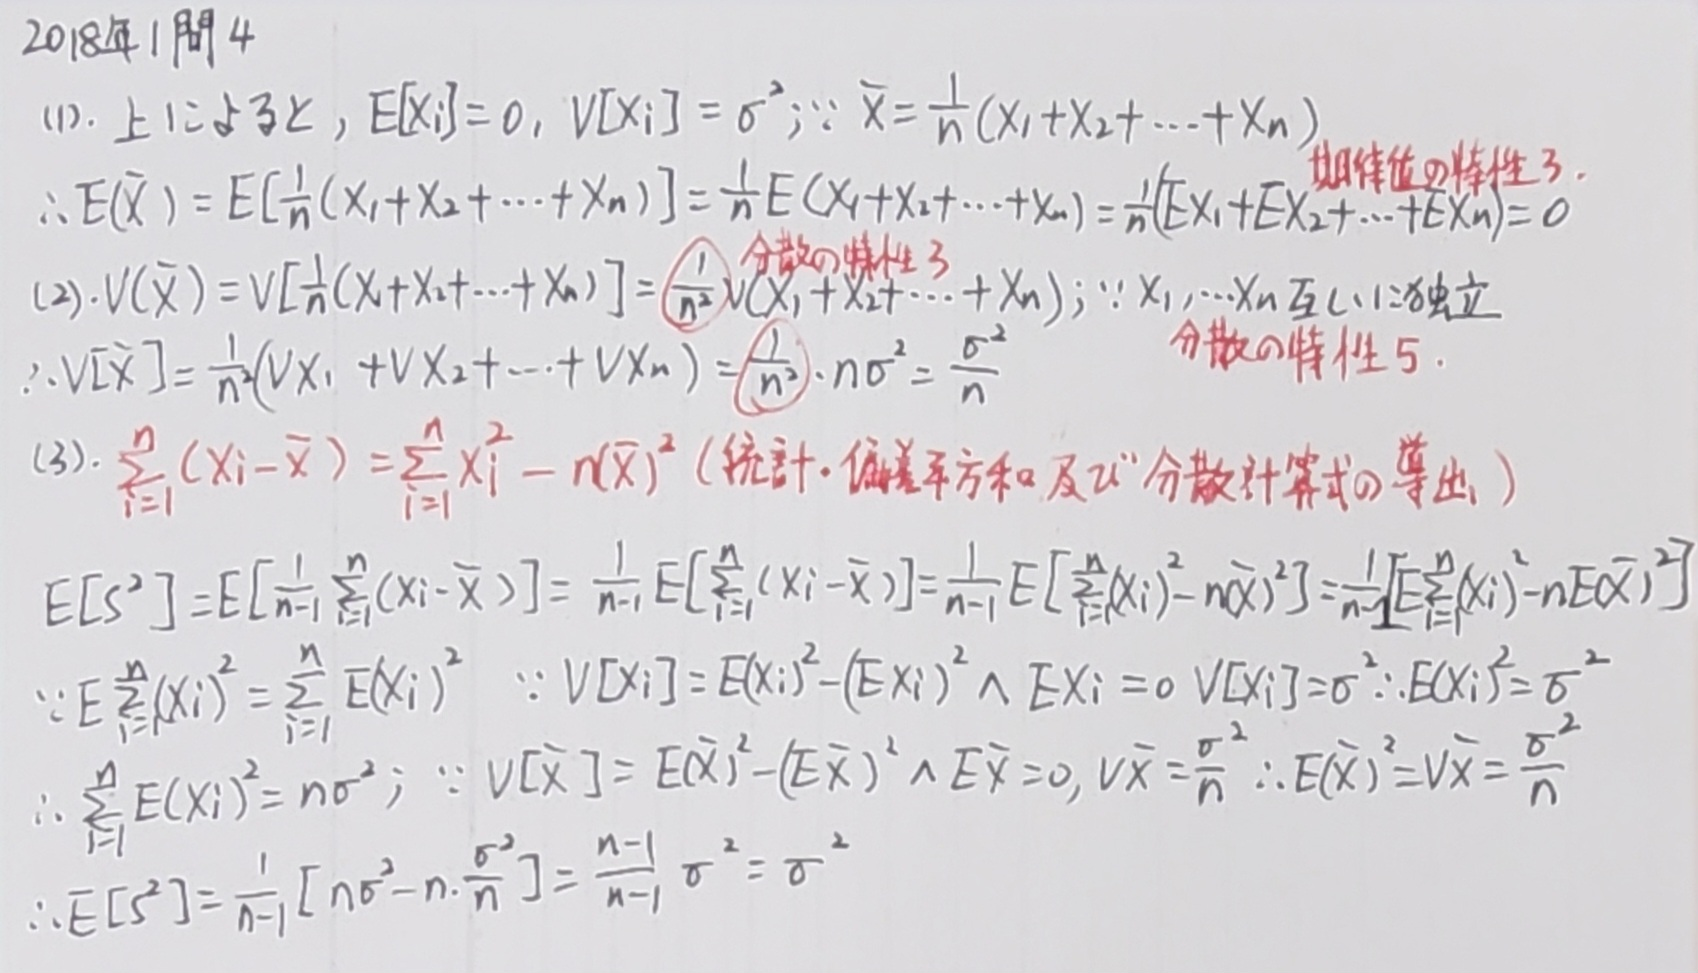 2018年1問4
(1). 上によると, E[Xi]=0, V[Xi]=σ²; ∵ X̄=1/n(X₁+X₂+…+Xn)
期待値の特性3.
∴E(X̄)=E[1/n(X₁+X₂+…+Xn)]=1/n E(X₁+X₂+…+Xn)=1/n(EX₁+EX₂+…+EXn)=0
分散の特性3
(2). V(X̄)=V[1/n(X₁+X₂+…+Xn)]=1/n² V(X₁+X₂+…+Xn); ∵ X₁,…Xn互いに独立
分散の特性5.
∴V[X̄]=1/n²(VX₁+VX₂+…+VXn)=1/n²·nσ²=σ²/n
(3). Σ_{i=1}^{n}(Xi-X̄)=Σ_{i=1}^{n}Xi²-n(X̄)² (統計・偏差平方和及び分散計算式の導出)
E[S²]=E[1/(n-1) Σ_{i=1}^{n}(Xi-X̄)]=1/(n-1) E[Σ_{i=1}^{n}(Xi-X̄)]=1/(n-1) E[Σ_{i=1}^{n}(Xi)²-n(X̄)²]=1/(n-1)[EΣ_{i=1}^{n}(Xi)²-nE(X̄)²]
∵EΣ_{i=1}^{n}(Xi)²=Σ_{i=1}^{n}E(Xi)² ∵V[Xi]=E(Xi)²-(EXi)²∧EXi=0 V[Xi]=σ²∴E(Xi)²=σ²
∴Σ_{i=1}^{n}E(Xi)²=nσ²; ∵V[X̄]=E(X̄)²-(EX̄)²∧EX̄=0, VX̄=σ²/n ∴E(X̄)²=VX̄=σ²/n
∴E[S²]=1/(n-1)[nσ²-n·σ²/n]=(n-1)/(n-1) σ²=σ²